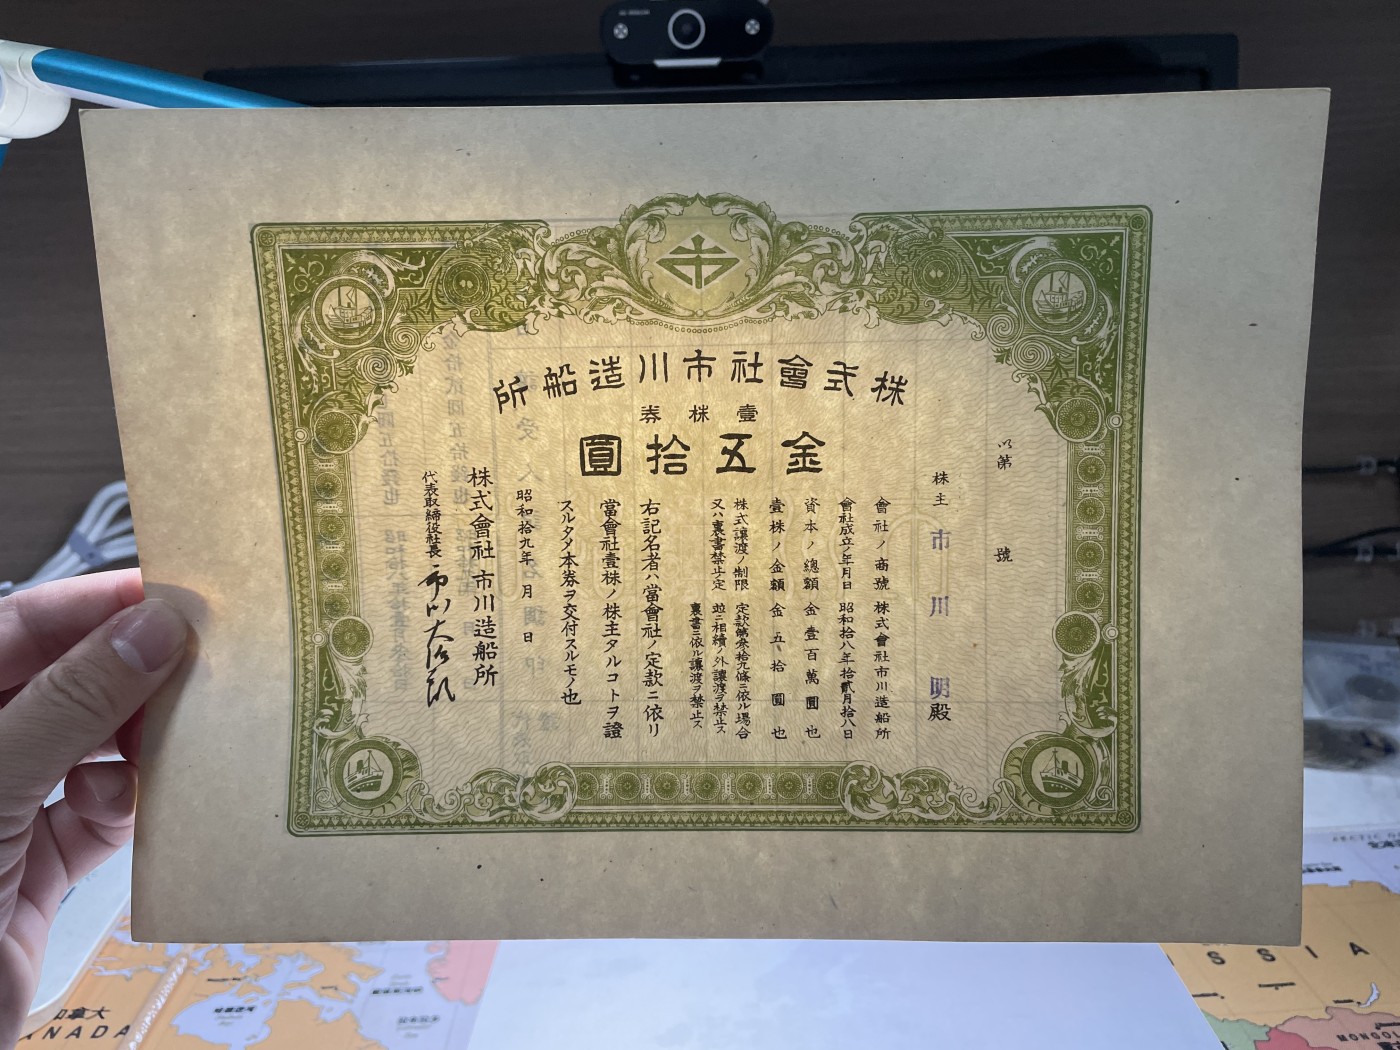 株式會社市川造船所
壹株券
金五拾圓
い第 號
株主 市川 明殿
會社ノ商號 株式會社市川造船所
會社成立ノ年月日 昭和拾八年拾貳月拾八日
資本ノ總額 金壹百萬圓也
壹株ノ金額 金五拾圓也
株式讓渡ノ制限 定款第參拾九條ニ依ル場合
又ハ裏書禁止ノ定 並ニ相續ノ外讓渡ヲ禁止ス
裏書ニ依ル讓渡ヲ禁止ス
右記名者ハ當會社ノ定款ニ依リ
當會社壹株ノ株主タルコトヲ證
スルタメ本券ヲ交付スルモノ也
昭和拾九年 月 日
株式會社 市川造船所
代表取締役社長
CANADA
加拿大
ARCTIC
SSIA
MONGOL